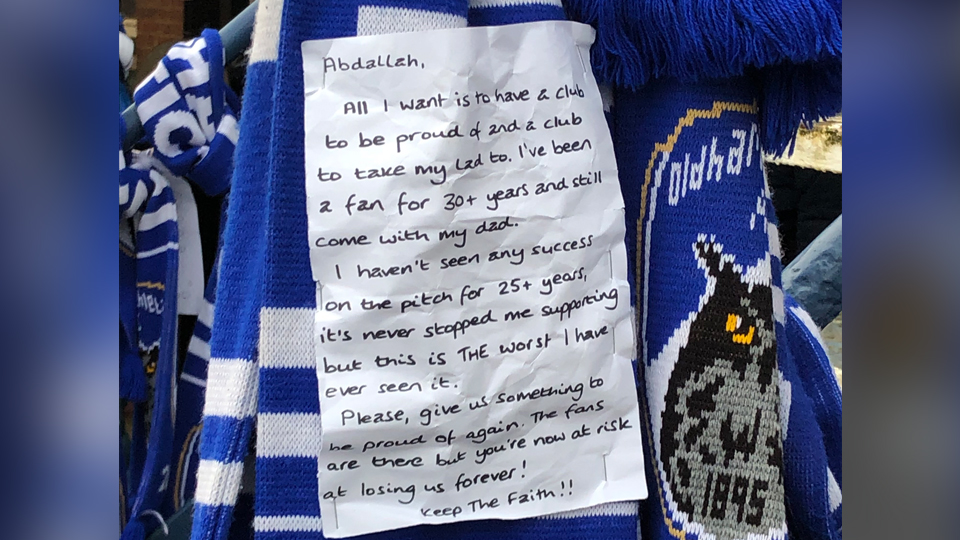 Abdallah,
All I want is to have a club
to be proud of and a club
to take my lad to. I've been
a fan for 30+ years and still
come with my dad.
I haven't seen any success
on the pitch for 25+ years,
it's never stopped me supporting
but this is THE worst I have
ever seen it.
Please, give us something to
be proud of again. The fans
are there but you're now at risk
at losing us forever!
Keep The Faith!!
Oldham
1895